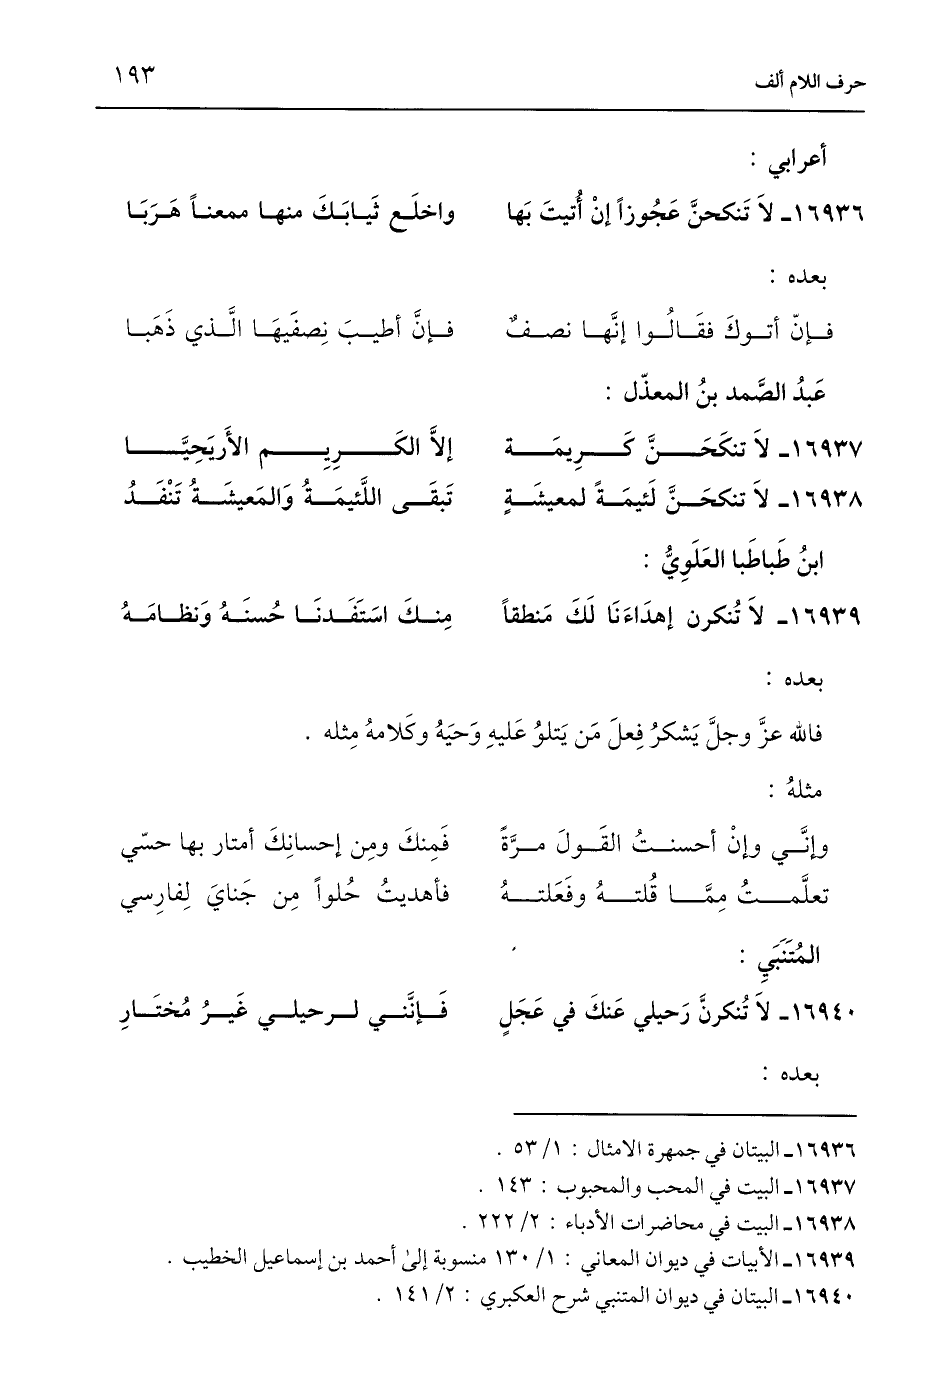 حرف اللام ألف ١٩٣
أعرابي :
١٦٩٣٦ـ لاَ تَنكحنَّ عَجُوزاً إنْ أُتيتَ بَها واخلَـع ثَيـابَـكَ منهـا ممعنـاً هَـرَبَـا
بعده :
فـإنّ أتـوكَ فقَـالُـوا إنَّهـا نصـفٌ فـإنَّ أطيـبَ نِصفَيهَـا الَّـذي ذَهَبـا
عَبدُ الصَّمد بنُ المعذّل :
١٦٩٣٧ـ لاَ تنكَحَـنَّ كَـرِيمَـة إلاَّ الكَـرِيـم الأَريَحِيَّـا
١٦٩٣٨ـ لاَ تنكحَـنَّ لَئيمَـةً لمعيشَـةٍ تَبقَـى اللَّئيمَـةُ وَالمَعيشَـةُ تَنْفَـدُ
ابنُ طَباطَبا العَلَوِيُّ :
١٦٩٣٩ـ لاَ تُنكرن إهدَاءَنَا لَكَ مَنطقاً مِنـكَ استَفَـدنَـا حُسنَـهُ وَنظـامَـهُ
بعده :
فالله عزَّ وجلَّ يَشكرُ فِعلَ مَن يَتلوُ عَليهِ وَحيَهُ وكَلامهُ مِثله .
مثلهُ :
وإنَّـي وإنْ أحسنـتُ القَـولَ مـرَّةً فَمِنكَ ومِن إحسانِكَ أمتار بها حسّي
تعلَّمـتُ مِمَّـا قُلتـهُ وفَعَلتـهُ فأهديتُ حُلواً مِن جَنايَ لِفارِسي
المُتَنَبَيِ :
١٦٩٤٠ـ لاَ تُنكرنَّ رَحيلي عَنكَ في عَجَلٍ فَـإنَّنـي لـرحيلـي غَيـرُ مُختَـارِ
بعده :
١٦٩٣٦ـ البيتان في جمهرة الامثال : ١/ ٥٣ .
١٦٩٣٧ـ البيت في المحب والمحبوب : ١٤٣ .
١٦٩٣٨ـ البيت في محاضرات الأدباء : ٢/ ٢٢٢ .
١٦٩٣٩ـ الأبيات في ديوان المعاني : ١/ ١٣٠ منسوبة إلىٰ أحمد بن إسماعيل الخطيب .
١٦٩٤٠ـ البيتان في ديوان المتنبي شرح العكبري : ٢/ ١٤١ .